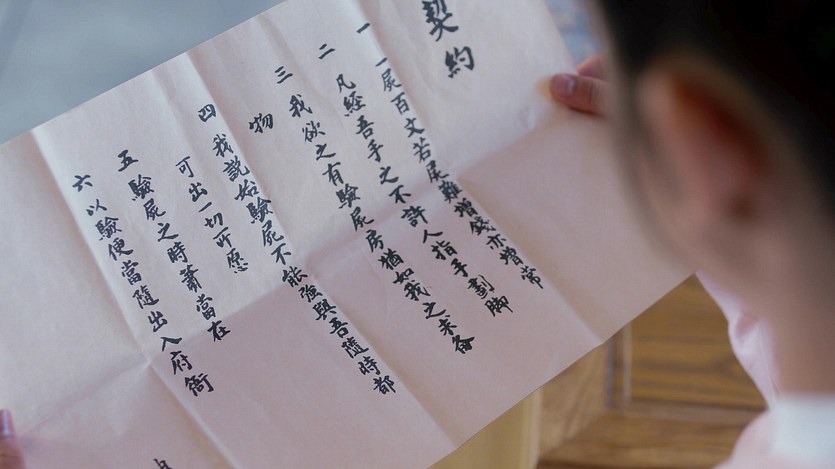 契約
一 一屍百文若屍難增錢亦增常
二 凡經吾手之不許人指手劃脚
三 我欲之有驗屍房猶如我之求备
物
四 我説始驗屍不能強與吾隨時都
可出一切可愿
五 驗屍之時蕭當在
六 以驗便當隨出入府衙